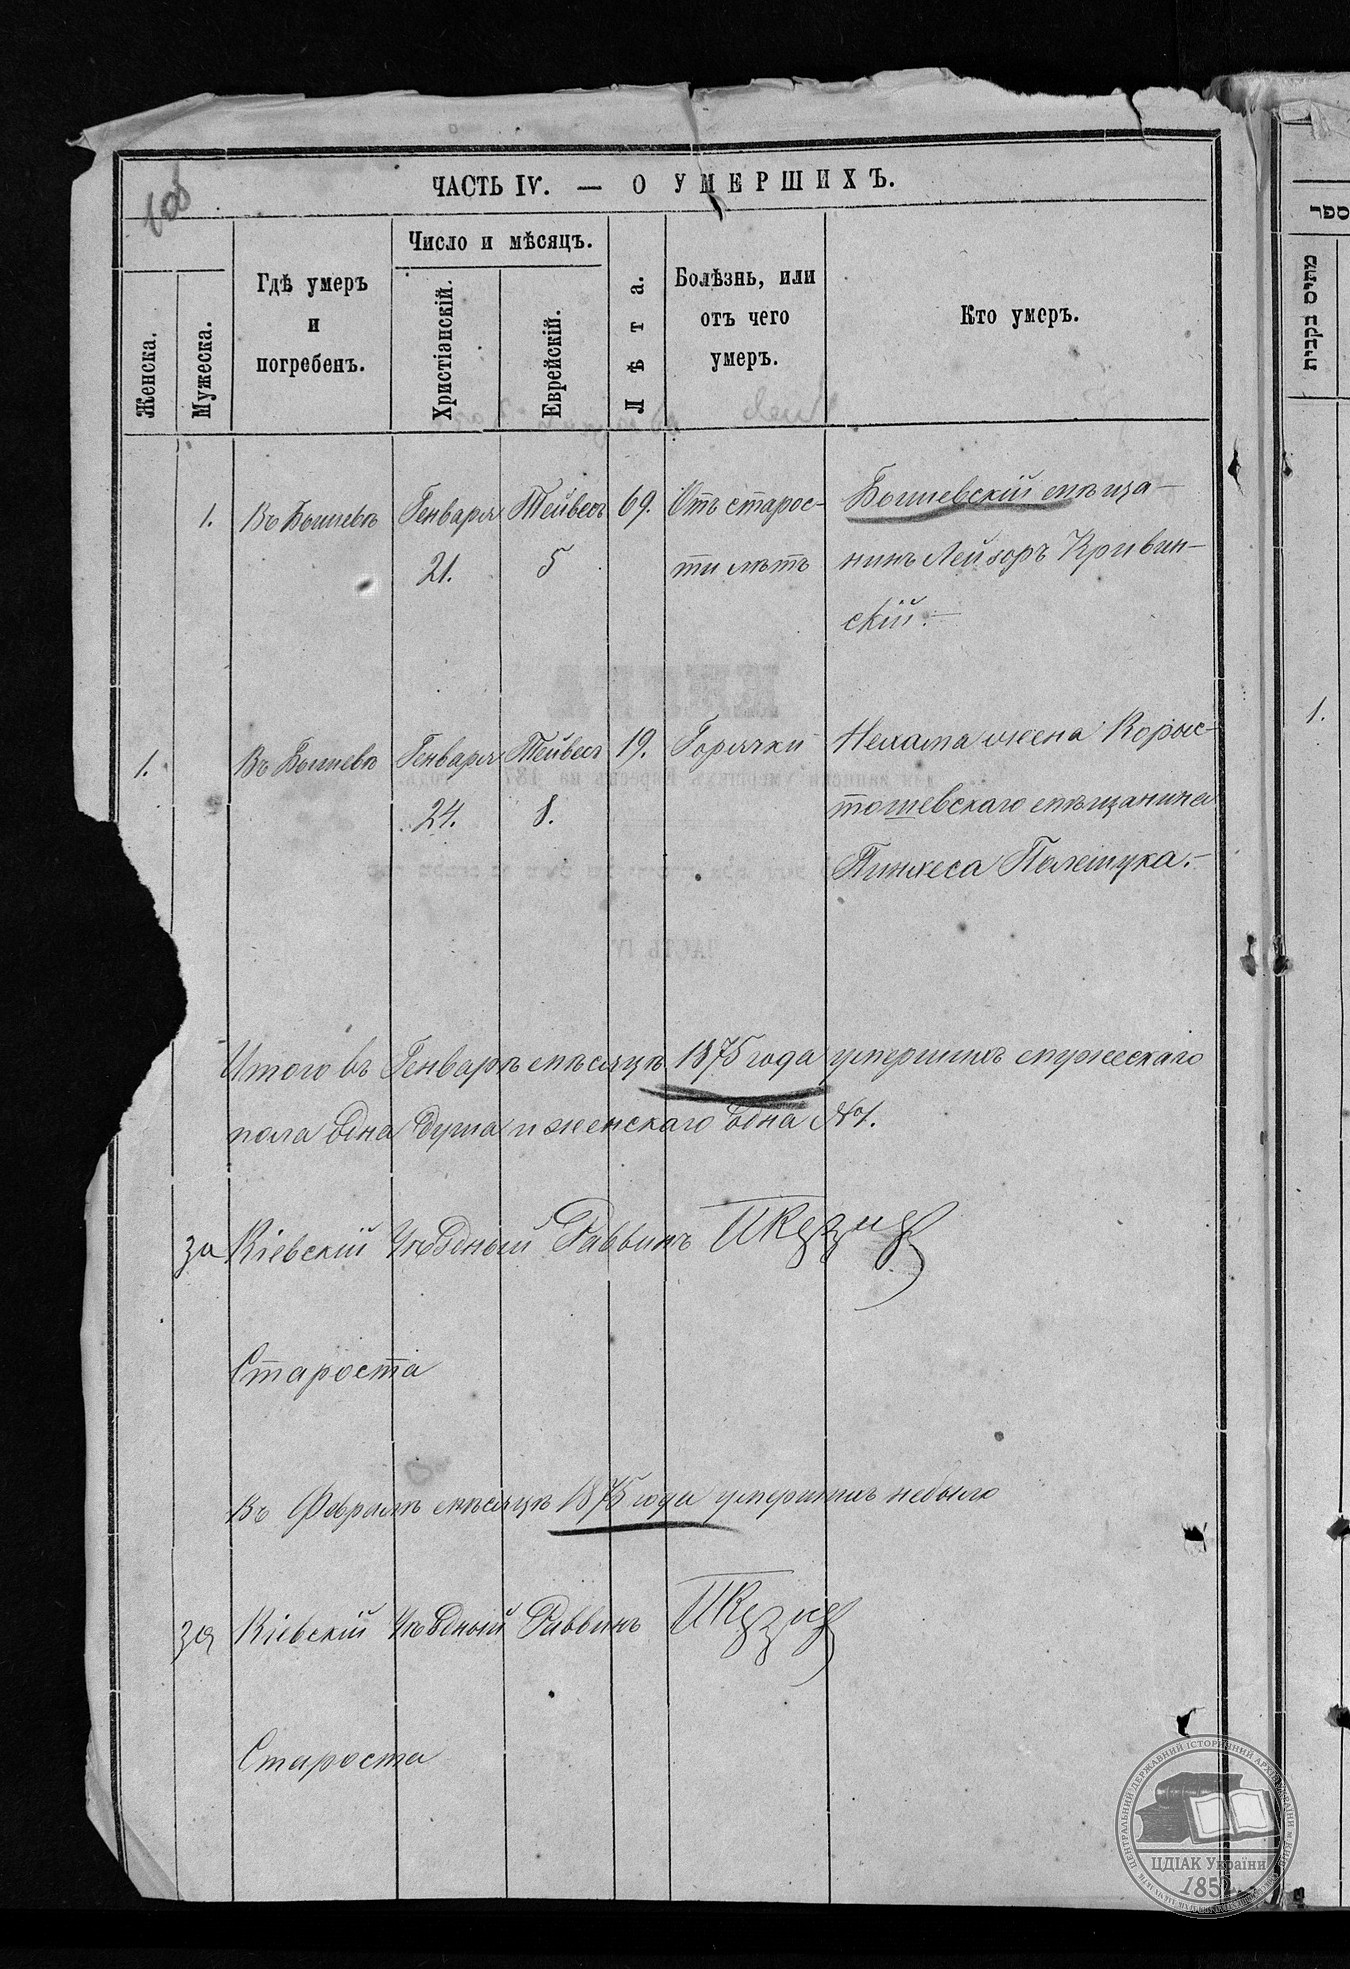 ЧАСТЬ IV. — О УМЕРШИХЪ.
Женска.
Мужеска.
Гдѣ умеръ
и
погребенъ.
Число и мѣсяцъ.
Христіанскій.
Еврейскій.
Лѣта.
Болѣзнь, или
отъ чего
умеръ.
Кто умеръ.
1. Въ Бышевѣ Генваря Тейвесъ 69. Отъ старос- Бышевскій мѣща-
21. 5 ти лѣтъ нинъ Лейзоръ Кривин-
скій.—
1. Въ Бышевѣ Генваря Тейвесъ 19. Горячки Нехама жена Корыс-
24. 8. тошевскаго мѣщанина
Пинхеса Полещука.—
Итого въ Генварѣ мѣсяцѣ 1875 года умершихъ мужескаго
пола одна душа и женскаго одна №1.
за Кіевскій Уѣздный Раввинъ
Староста
Въ Февралѣ мѣсяцѣ 1875 года умершихъ небыло
за Кіевскій Уѣздный Раввинъ
Староста
ספר
מתים נקבות
1.
ЦЕНТРАЛЬНИЙ ДЕРЖАВНИЙ ІСТОРИЧНИЙ АРХІВ УКРАЇНИ м. КИЇВ
ЦДІАК України
1852